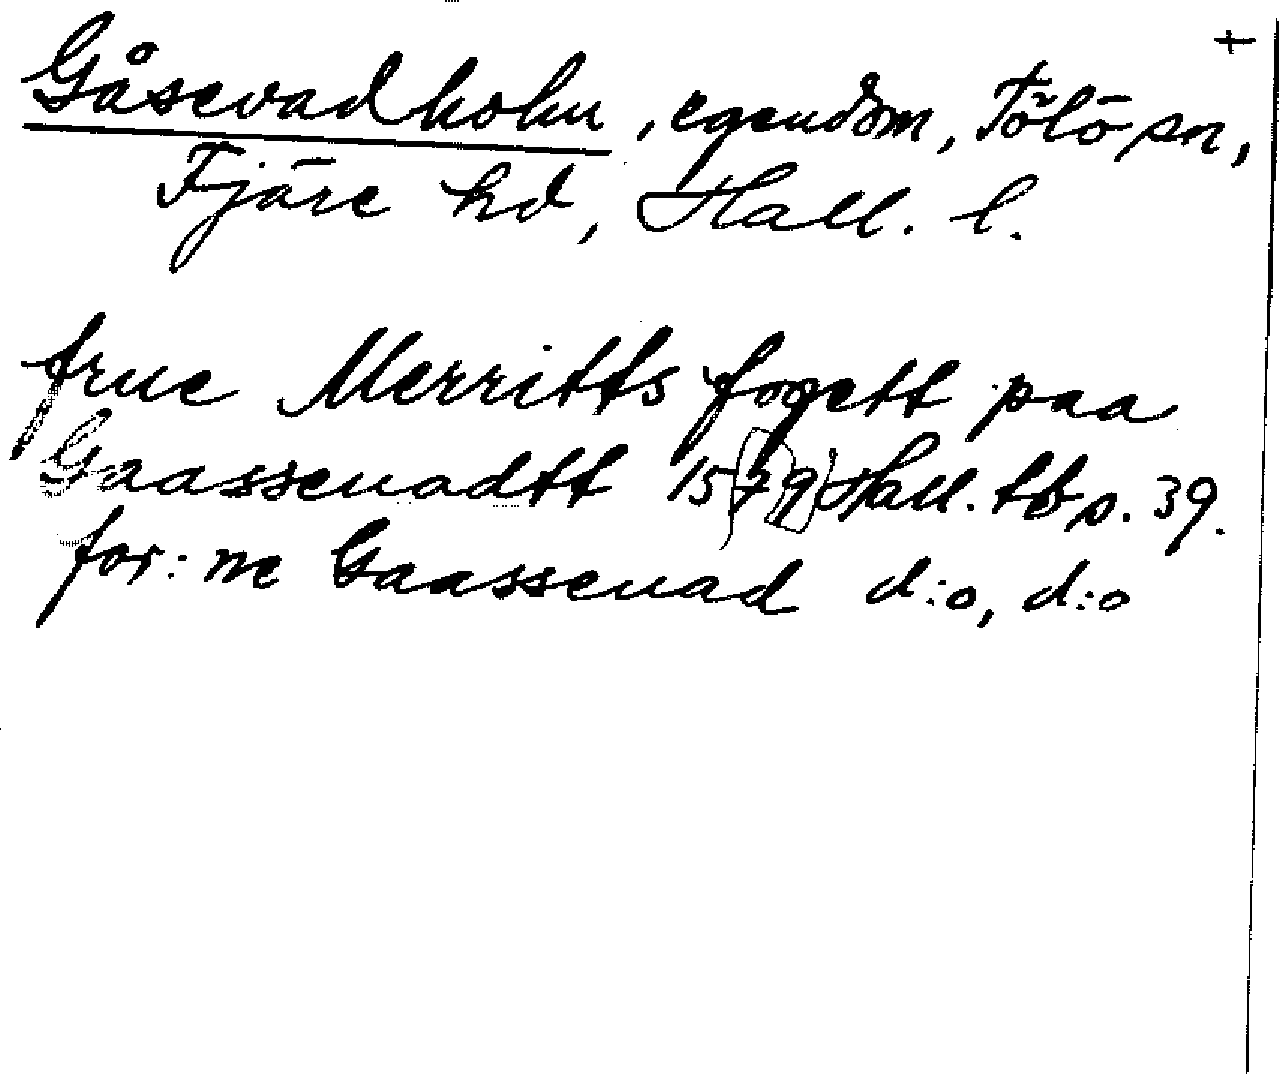 +
Gåsevadholm, egendom, Tölö sn,
Fjäre hd, Hall. l.
frue Merritts fogett paa
Gaasseuadtt 1579 Hall. tb s. 39.
for:ne Gaasseuad d:o, d:o